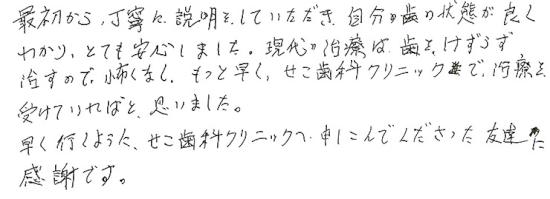 最初から、丁寧に説明をしていただき、自分の歯の状態が良く
わかり、とても安心しました。現代の治療は、歯をけずらず
治すので、怖くなく、もっと早く、せこ歯科クリニックで、治療を
受けていればと、思いました。
早く行くように、せこ歯科クリニックへ、申しこんでくださった友達に
感謝です。